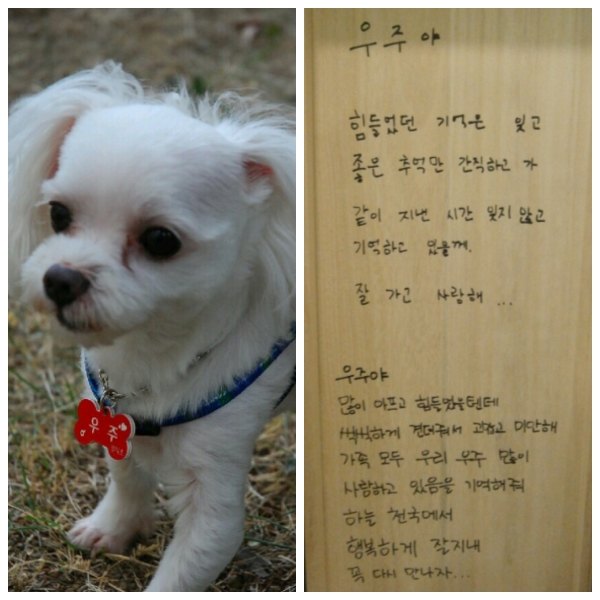 우주
우주야
힘들었던 기억은 잊고
좋은 추억만 간직하고 가
같이 지낸 시간 잊지 않고
기억하고 있을께.
잘 가고 사랑해 ...
우주야
많이 아프고 힘들었을텐데
씩씩하게 견뎌줘서 고맙고 미안해
가족 모두 우리 우주 많이
사랑하고 있음을 기억해줘
하늘 천국에서
행복하게 잘지내
꼭 다시 만나자...